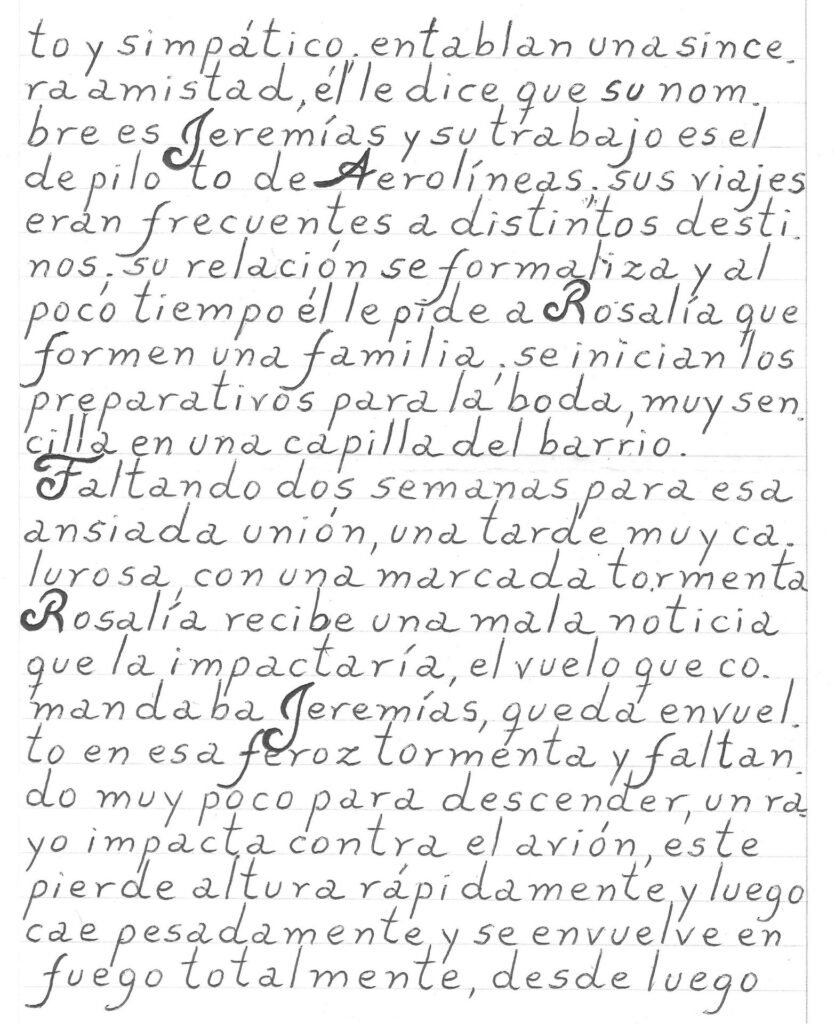 to y simpático. entablan una since.
ra amistad, él le dice que su nom.
bre es Jeremías y su trabajo es el
de piloto de Aerolíneas. sus viajes
eran frecuentes a distintos desti.
nos. su relación se formaliza y al
poco tiempo él le pide a Rosalía que
formen una familia. se inician los
preparativos para la boda, muy sen.
cilla en una capilla del barrio.
Faltando dos semanas para esa
ansiada unión, una tarde muy ca.
lurosa, con una marcada tormenta
Rosalía recibe una mala noticia
que la impactaría, el vuelo que co.
mandaba Jeremías, queda envuel.
to en esa feroz tormenta y faltan.
do muy poco para descender, un ra.
yo impacta contra el avión, este
pierde altura rápidamente y luego
cae pesadamente y se envuelve en
fuego totalmente, desde luego